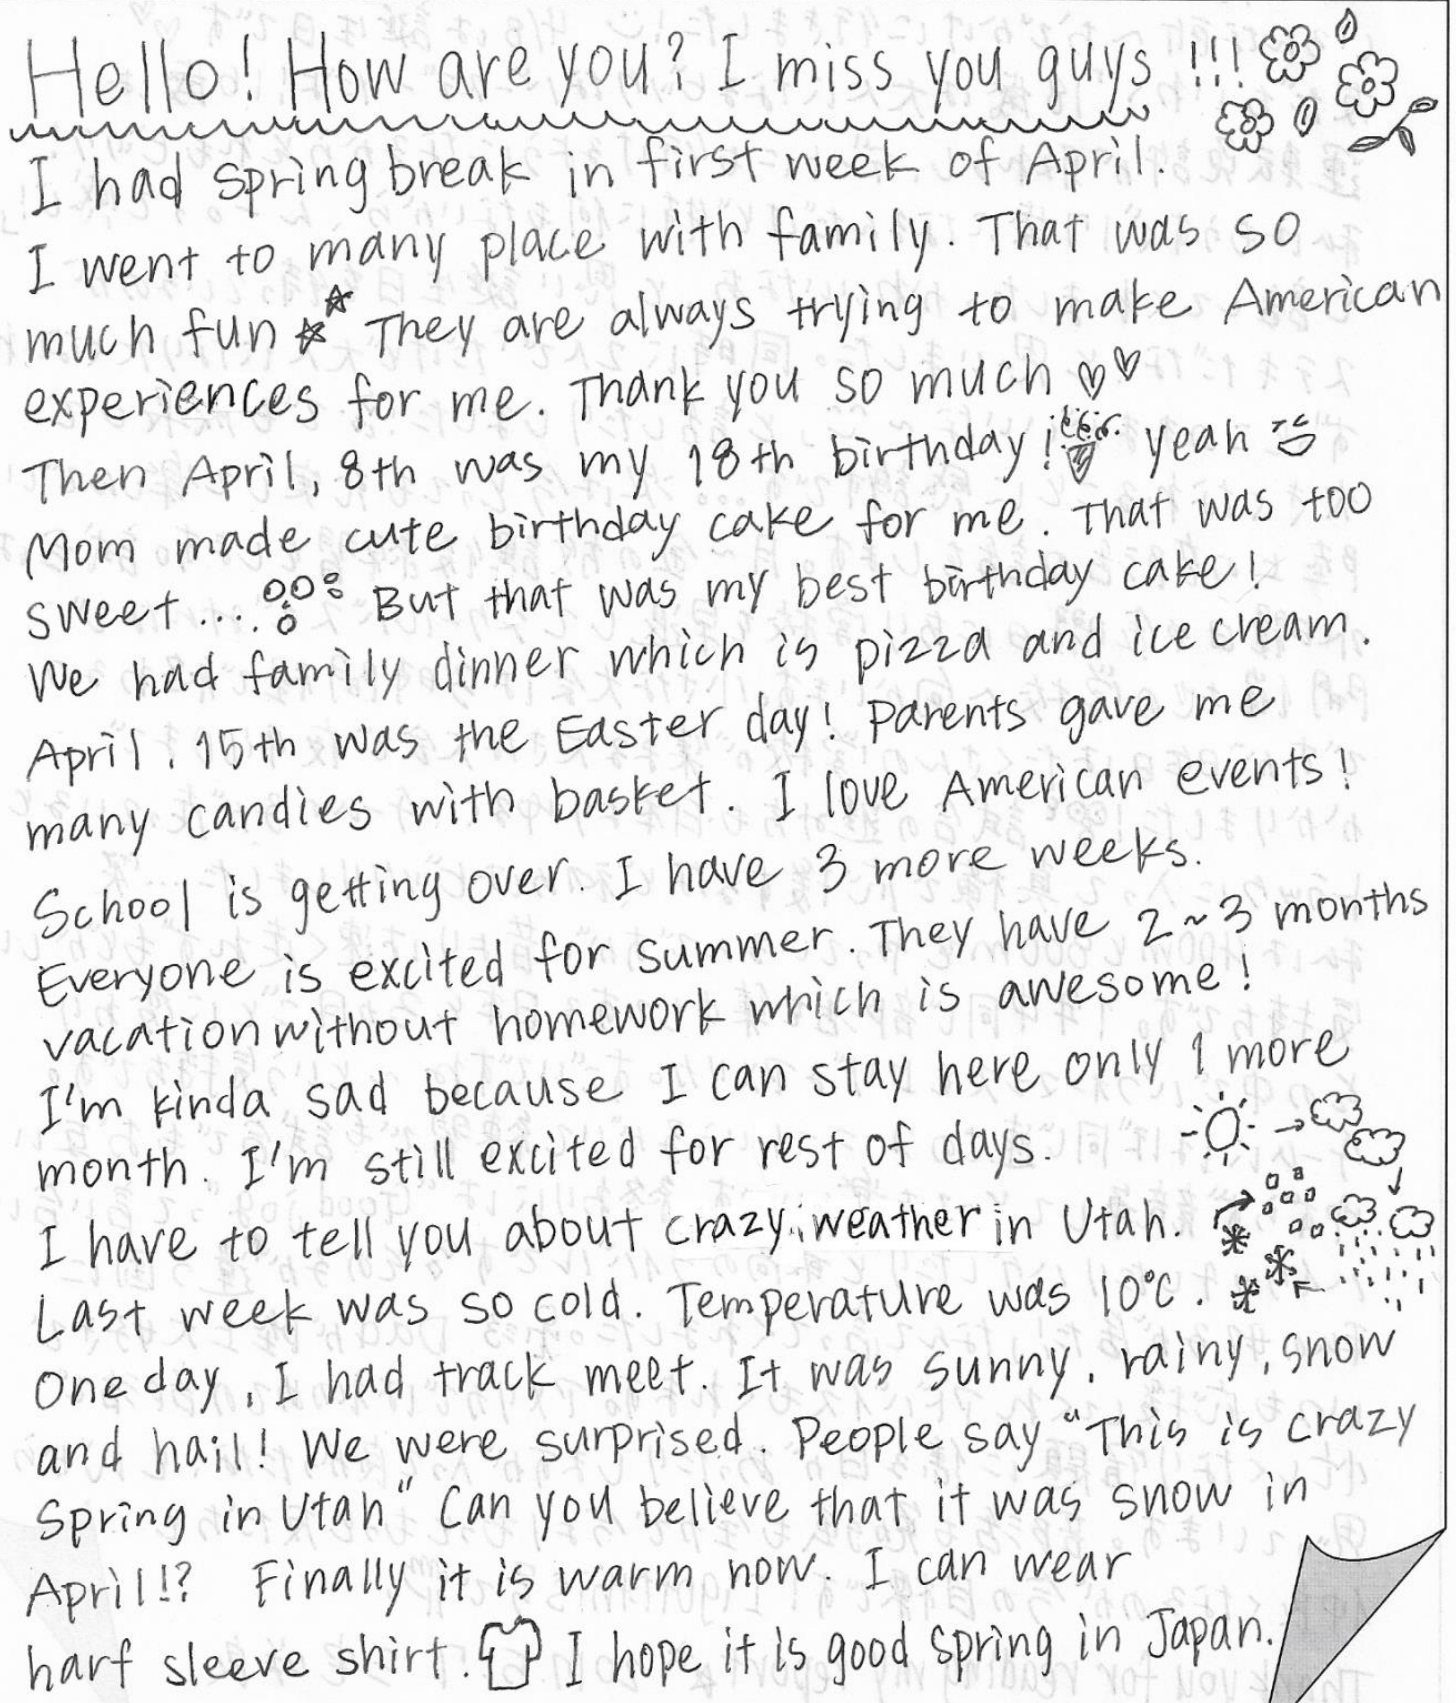 Hello! How are you? I miss you guys !!!
I had spring break in first week of April.
I went to many place with family. That was so
much fun ☆☆ They are always trying to make American
experiences for me. Thank you so much ♡♡
Then April, 8th was my 18th birthday! yeah
Mom made cute birthday cake for me. That was too
sweet.... But that was my best birthday cake!
We had family dinner which is pizza and ice cream.
April. 15th was the Easter day! Parents gave me
many candies with basket. I love American events!
School is getting over. I have 3 more weeks.
Everyone is excited for summer. They have 2~3 months
vacation without homework which is awesome!
I'm kinda sad because I can stay here only 1 more
month. I'm still excited for rest of days.
I have to tell you about crazy weather in Utah.
Last week was so cold. Temperature was 10°C.
One day, I had track meet. It was sunny, rainy, snow
and hail! We were surprised. People say "This is crazy
spring in Utah" Can you believe that it was snow in
April!? Finally it is warm now. I can wear
harf sleeve shirt. I hope it is good spring in Japan.